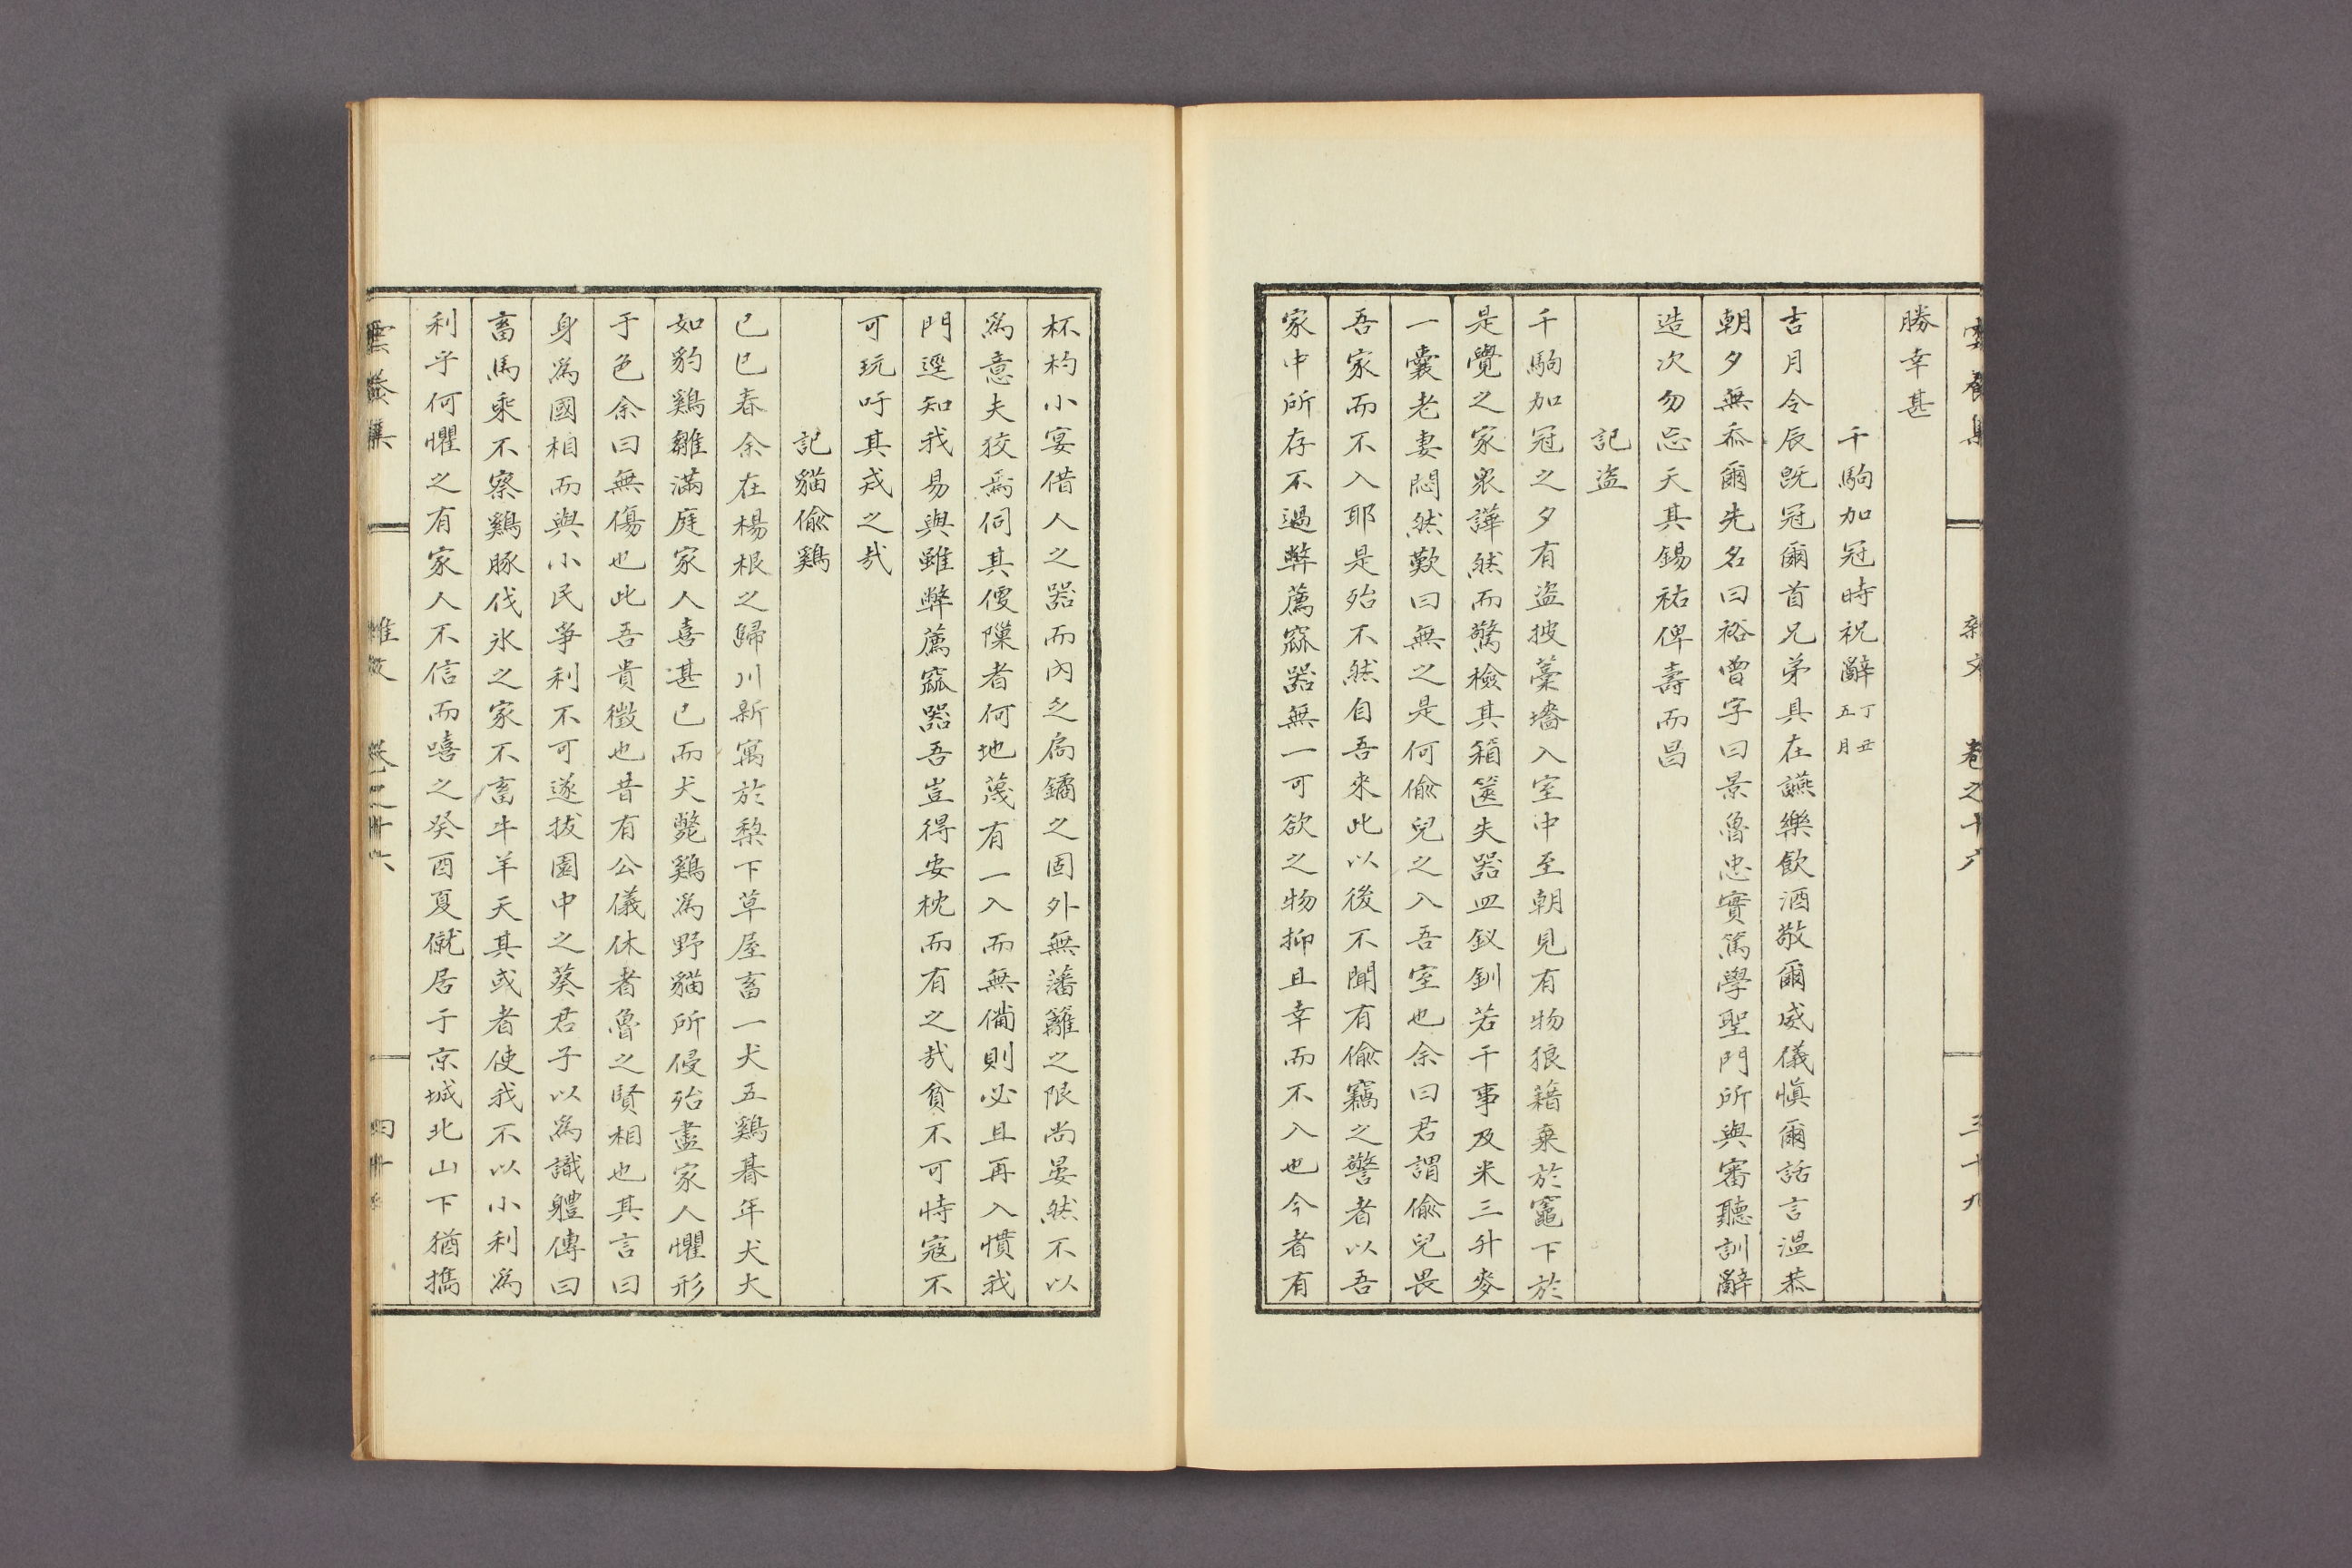 雲養集 雜文 卷之十六 三十九
勝幸甚
千駒加冠時祝辭丁丑五月
吉月令辰旣冠爾首兄弟具在讌樂飮酒敬爾威儀愼爾話言溫恭
朝夕無忝爾先名曰裕曾字曰景魯忠實篤學聖門所與審聽訓辭
造次勿忘天其錫祐俾壽而昌
記盜
千駒加冠之夕有盜披藁墻入室中至朝見有物狼藉棄於竈下於
是覺之家眾譁然而驚檢其箱篋失器皿釵釧若干事及米三升麥
一囊老妻悶然歎曰無之是何偸兒之入吾室也余曰君謂偸兒畏
吾家而不入耶是殆不然自吾來此以後不聞有偸竊之警者以吾
家中所存不過弊薦窳器無一可欲之物抑且幸而不入也今者有
杯杓小宴借人之器而內乏扃鐍之固外無藩籬之限尚晏然不以
爲意夫狡焉伺其傁隟者何地蔑有一入而無備則必且再入慣我
門逕知我易與雖弊薦窳器吾豈得安枕而有之哉貧不可恃寇不
可玩吁其戒之哉
記貓偸鷄
己巳春余在楊根之歸川新寓於梨下草屋畜一犬五鷄朞年犬大
如豹鷄雛滿庭家人喜甚已而犬斃鷄爲野貓所侵殆盡家人懼形
于色余曰無傷也此吾貴徵也昔有公儀休者魯之賢相也其言曰
身爲國相而與小民爭利不可遂拔園中之葵君子以爲識軆傳曰
畜馬乘不察鷄豚伐氷之家不畜牛羊天其或者使我不以小利爲
利乎何懼之有家人不信而嘻之癸酉夏僦居于京城北山下猶擕
雲養集 雜文 卷之十六 四十